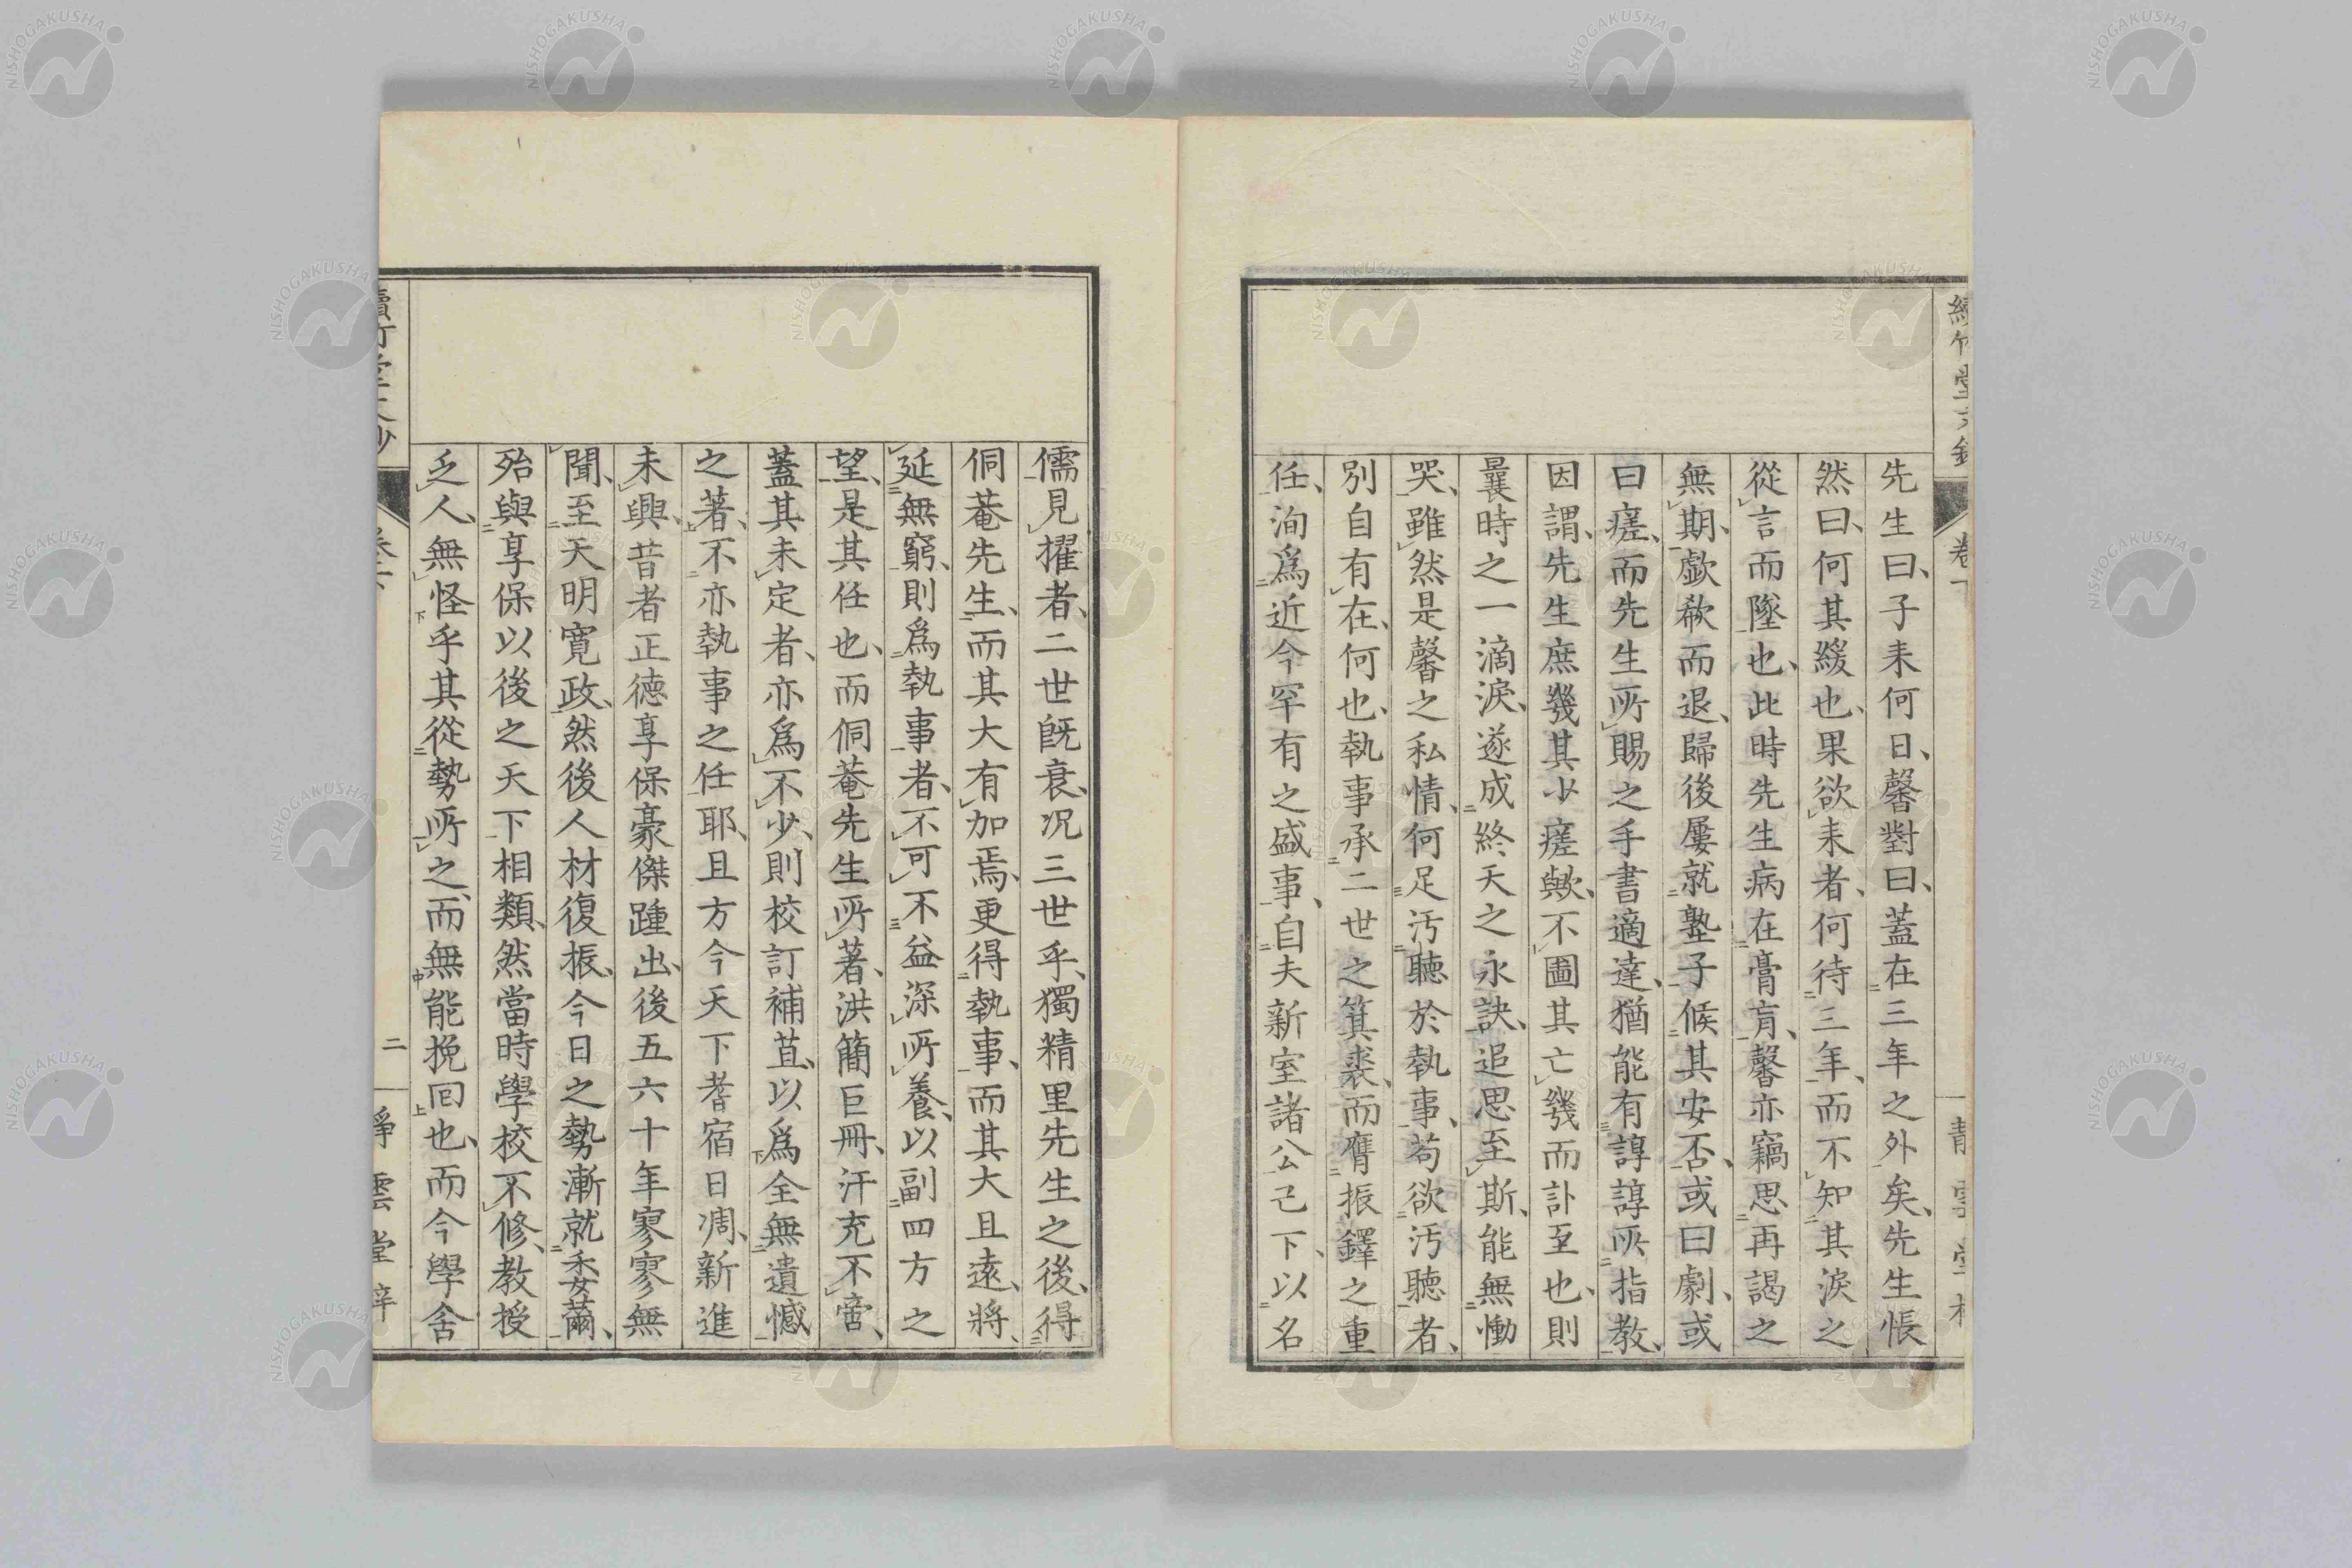 先生曰、子耒何日、馨對曰、蓋在三年之外矣、先生悵
然曰、何其緩也、果欲耒者、何待三年、而不知其淚之
從言而墜也、此時先生病在膏肓、馨亦竊思再謁之
無期、歔欷而退、歸後屢就塾子候其安否、或曰劇、或
曰瘥、而先生所賜之手書適達、猶能有諄諄所指教、
因謂、先生庶幾其少瘥歟、不圖其亡幾而訃至也、則
曩時之一滴淚、遂成終天之永訣、追思至斯、能無慟
哭、雖然是馨之私情、何足汚聽於執事、苟欲汚聽者、
別自有在、何也、執事承二世之箕裘、而膺振鐸之重
任、洵爲近今罕有之盛事、自夫新室諸公己下、以名
儒見擢者、二世旣衰、况三世乎、獨精里先生之後、得
侗菴先生、而其大有加焉、更得執事、而其大且遠、將
延無窮、則爲執事者、不可不益深所養、以副四方之
望、是其任也、而侗菴先生所著、洪簡巨冊、汗充不啻、
蓋其未定者、亦爲不少、則校訂補苴、以爲全無遺憾
之著、不亦執事之任耶、且方今天下耆宿日凋、新進
未興、昔者正德享保豪傑踵出、後五六十年寥寥無
聞、至天明寛政、然後人材復振、今日之勢漸就委薾、
殆與享保以後之天下相類、然當時學校不修、教授
乏人、無怪乎其從勢所之、而無能挽回也、而今學舍
卷下
二